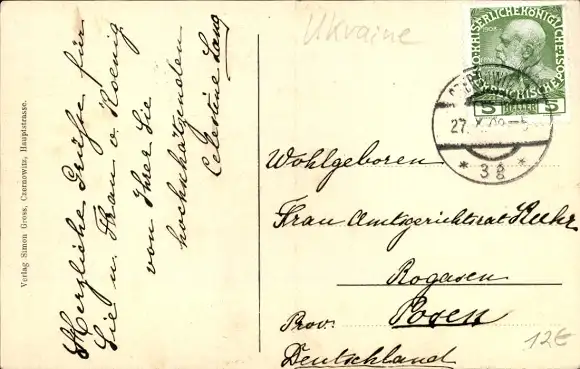 Herzliche Grüße für
Sie u. Frau v. Koenig
von Ihrer Sie
hochschätzenden
Celestine Lang
Verlag Simon Gross, Czernowitz, Hauptstrasse.
Ukraine
KAISERLICHE KÖNIGLICHE
1908
5 HELLER 5
27. X. 08
* 3g *
Wohlgeboren
Frau Amtsgerichtsrat
Rogasen
Prov. Posen
Deutschland
12€